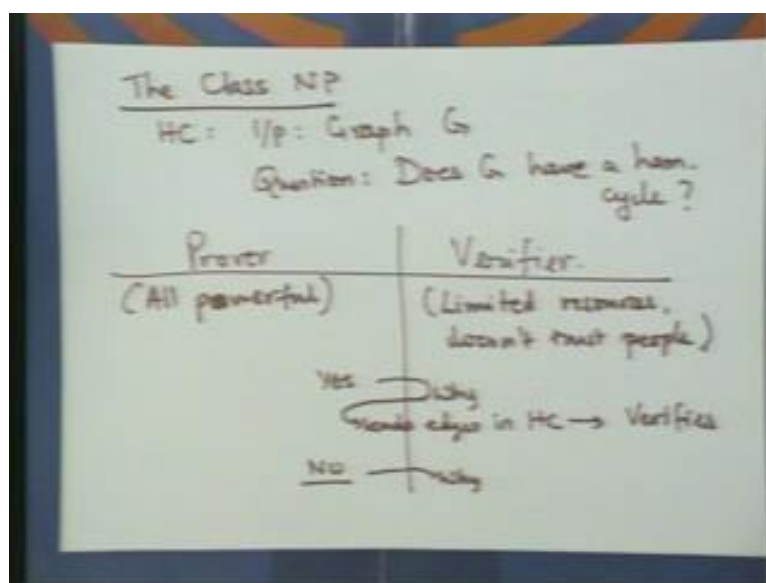 The Class NP
HC: I/p: Graph G
Question: Does G have a ham.
cycle?
Prover Verifier.
(All powerful) (Limited resources,
doesn't trust people)
Yes Why
sends edges in HC → Verifies
No Why